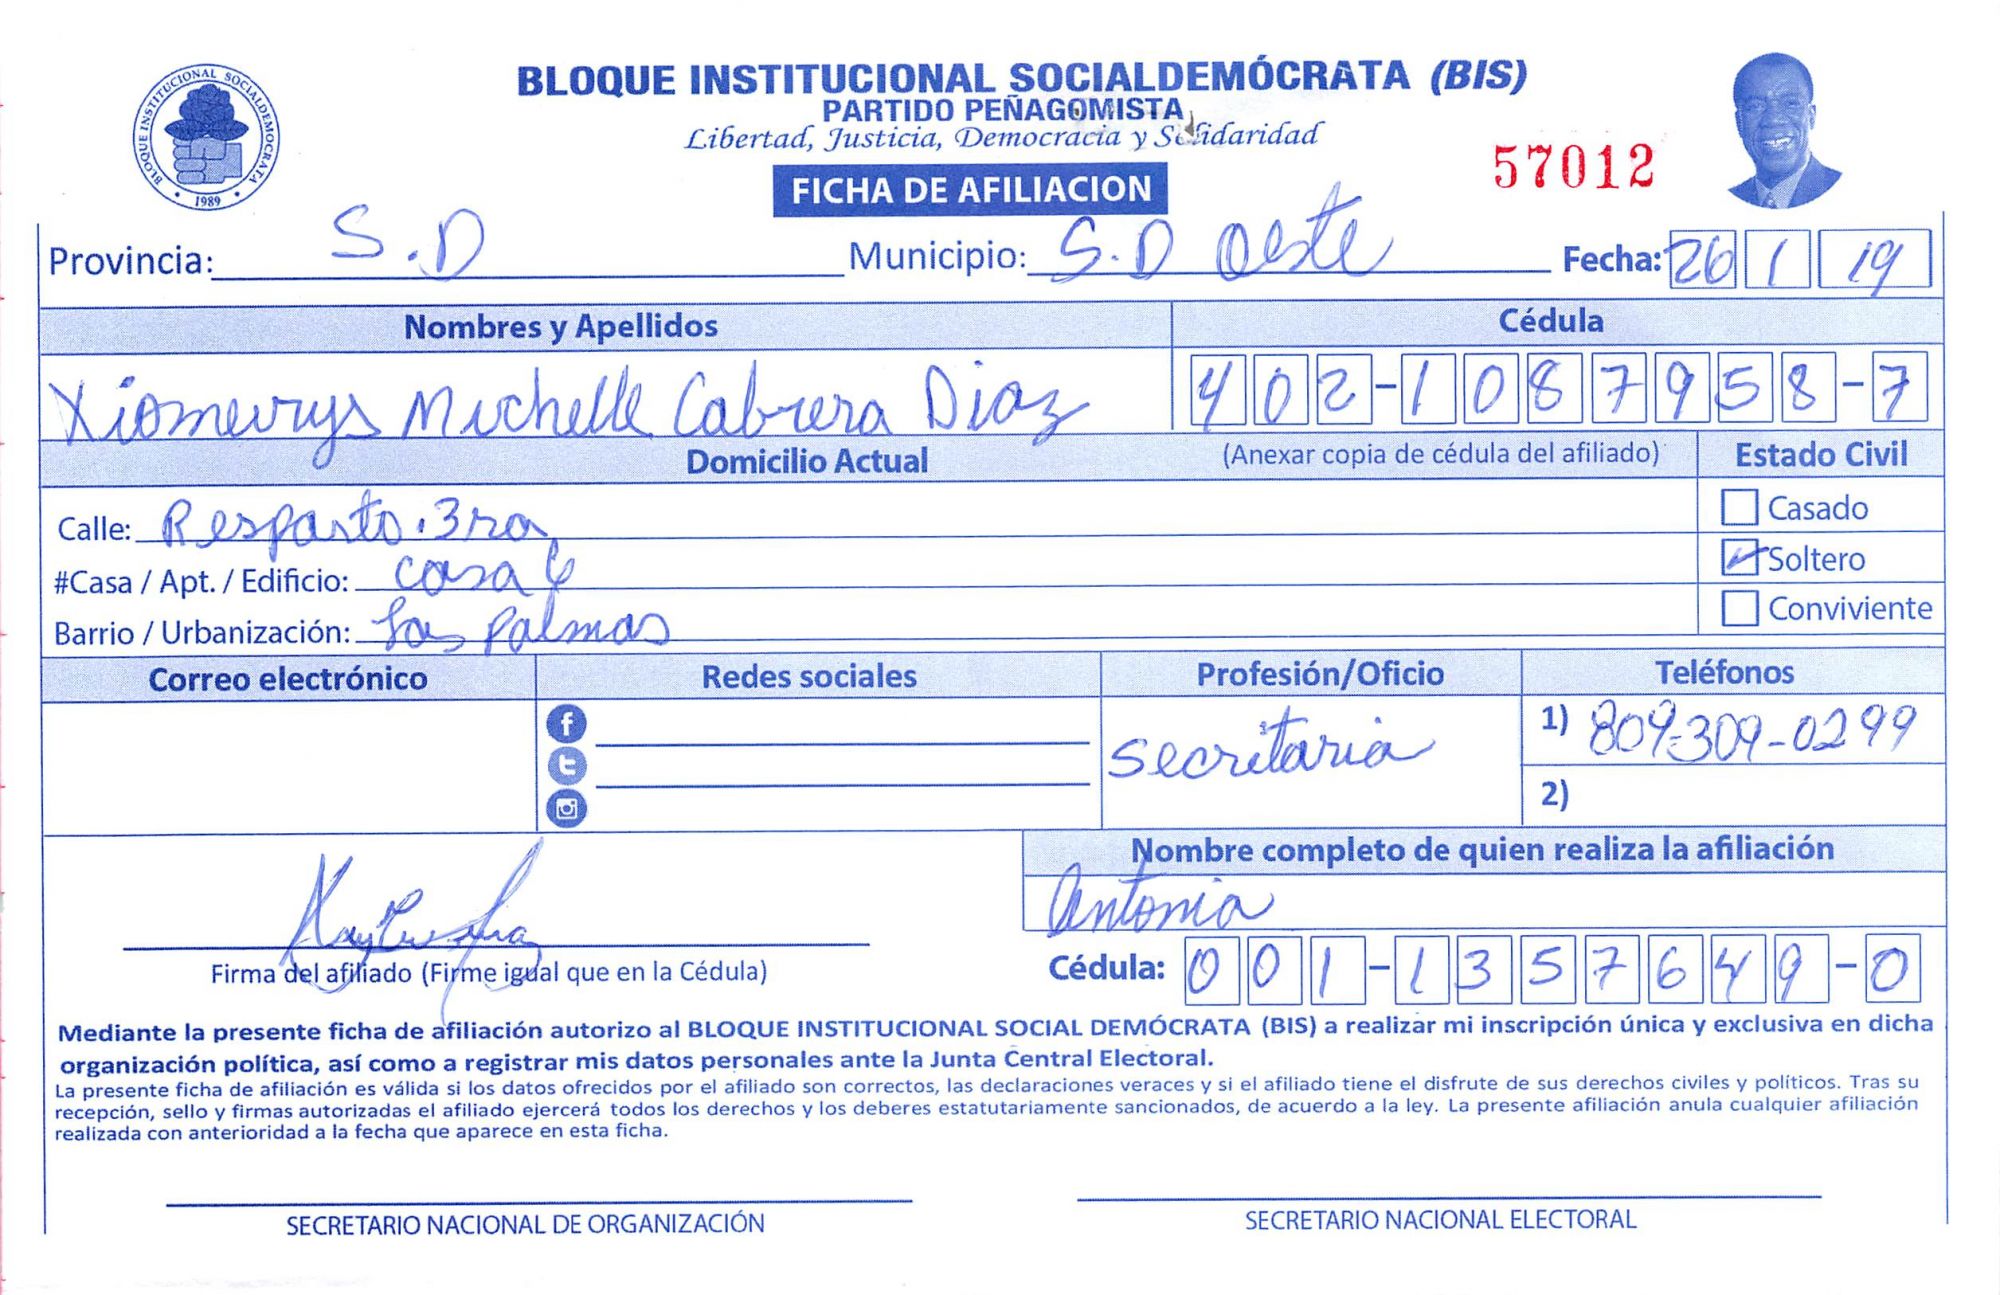 BLOQUE INSTITUCIONAL SOCIALDEMÓCRATA (BIS)
PARTIDO PEÑAGOMISTA
Libertad, Justicia, Democracia y Solidaridad
BLOQUE INSTITUCIONAL SOCIALDEMOCRATA
1989
FICHA DE AFILIACION
57012
Provincia: S.D Municipio: S.D Oeste Fecha: 26 1 19
Nombres y Apellidos Cédula
Xiomerys Michelle Cabrera Diaz 402-1087958-7
Domicilio Actual (Anexar copia de cédula del afiliado) Estado Civil
Calle: Resparto.3ra Casado
#Casa / Apt. / Edificio: casa 6 Soltero
Barrio / Urbanización: Las Palmas Conviviente
Correo electrónico Redes sociales Profesión/Oficio Teléfonos
secretaria 1) 809-309-0299
2)
Nombre completo de quien realiza la afiliación
Antonia
Firma del afiliado (Firme igual que en la Cédula) Cédula: 001-1357649-0
Mediante la presente ficha de afiliación autorizo al BLOQUE INSTITUCIONAL SOCIAL DEMÓCRATA (BIS) a realizar mi inscripción única y exclusiva en dicha
organización política, así como a registrar mis datos personales ante la Junta Central Electoral.
La presente ficha de afiliación es válida si los datos ofrecidos por el afiliado son correctos, las declaraciones veraces y si el afiliado tiene el disfrute de sus derechos civiles y políticos. Tras su
recepción, sello y firmas autorizadas el afiliado ejercerá todos los derechos y los deberes estatutariamente sancionados, de acuerdo a la ley. La presente afiliación anula cualquier afiliación
realizada con anterioridad a la fecha que aparece en esta ficha.
SECRETARIO NACIONAL DE ORGANIZACIÓN SECRETARIO NACIONAL ELECTORAL